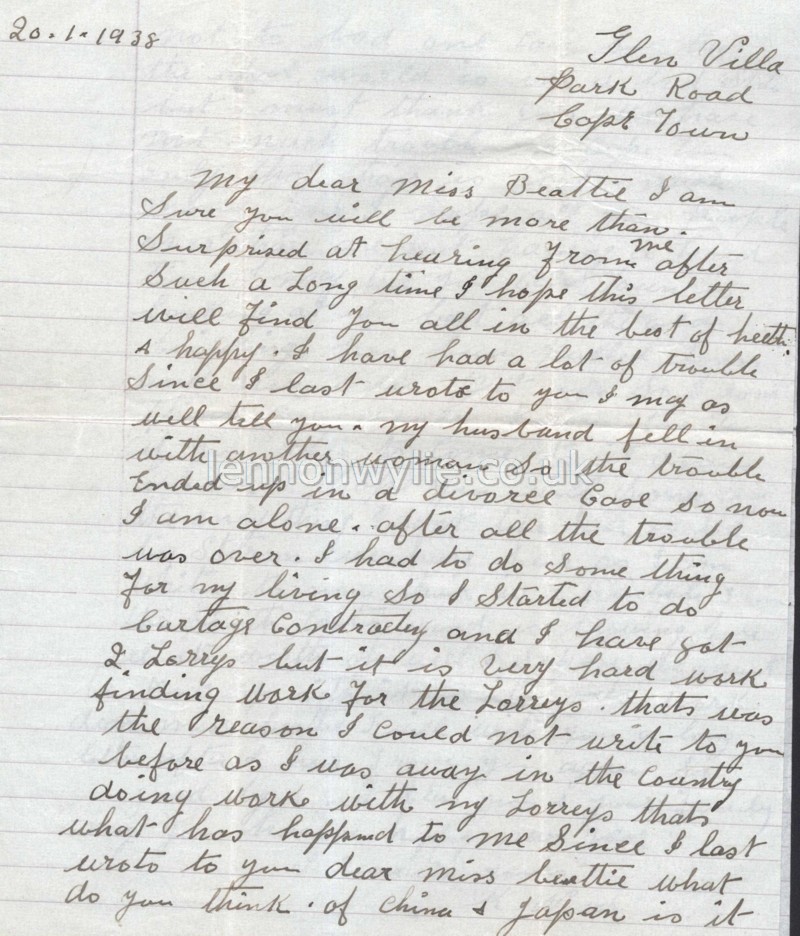 20.1.1938
Glen Villa
Park Road
Cape Town
My dear Miss Beattie I am
Sure you will be more than.
Surprised at hearing from me after
Such a Long time I hope this letter
will find you all in the best of heeth.
& happy. I have had a lot of trouble
Since I last wrote to you I may as
well tell you. my husband fell in
with another woman So the trouble
Ended up in a divorce Case So now
I am alone. after all the trouble
was over. I had to do Some thing
for my living So I Started to do
Cartage and I have got
2 Lorrys but it is Very hard work
finding Work for the Lorreys. thats was
the reason I Could not write to you
before as I was away in the Country
doing work with my Lorreys thats
what has happend to me Since I last
wroto to you dear miss beattie what
do you think. of China & Japan is it
lennonwylie.co.uk